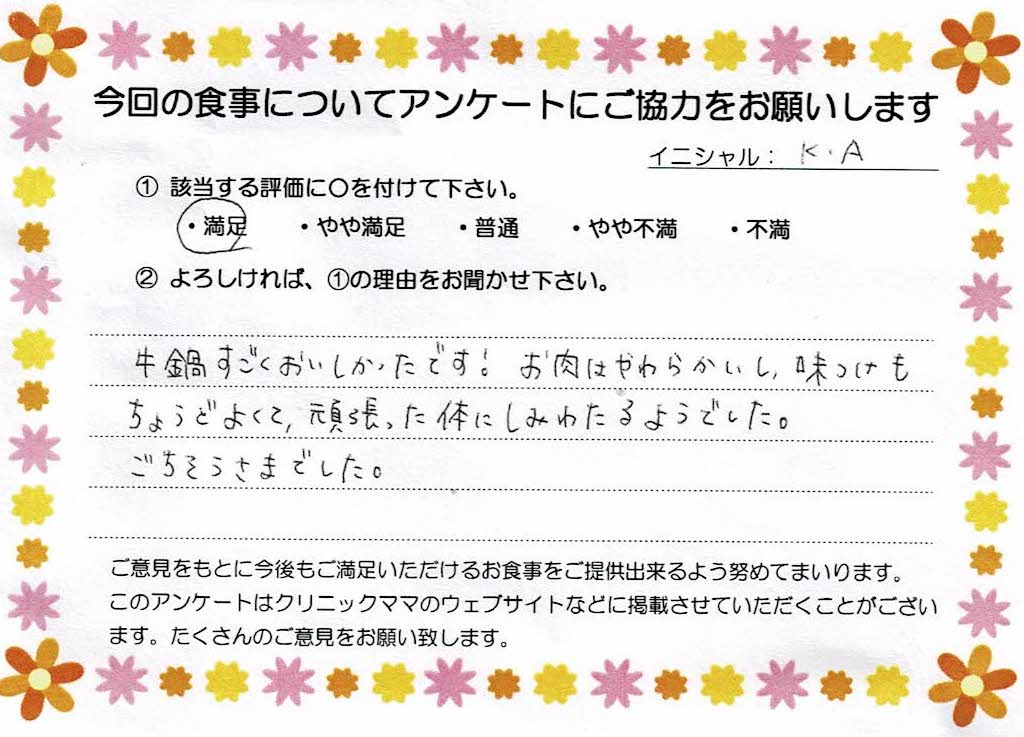 今回の食事についてアンケートにご協力をお願いします
イニシャル： K.A
① 該当する評価に〇を付けて下さい。
・満足 ・やや満足 ・普通 ・やや不満 ・不満
② よろしければ、①の理由をお聞かせ下さい。
牛鍋すごくおいしかったです！ お肉はやわらかいし、味つけも
ちょうどよくて、頑張った体にしみわたるようでした。
ごちそうさまでした。
ご意見をもとに今後もご満足いただけるお食事をご提供出来るよう努めてまいります。
このアンケートはクリニックママのウェブサイトなどに掲載させていただくことがござい
ます。たくさんのご意見をお願い致します。